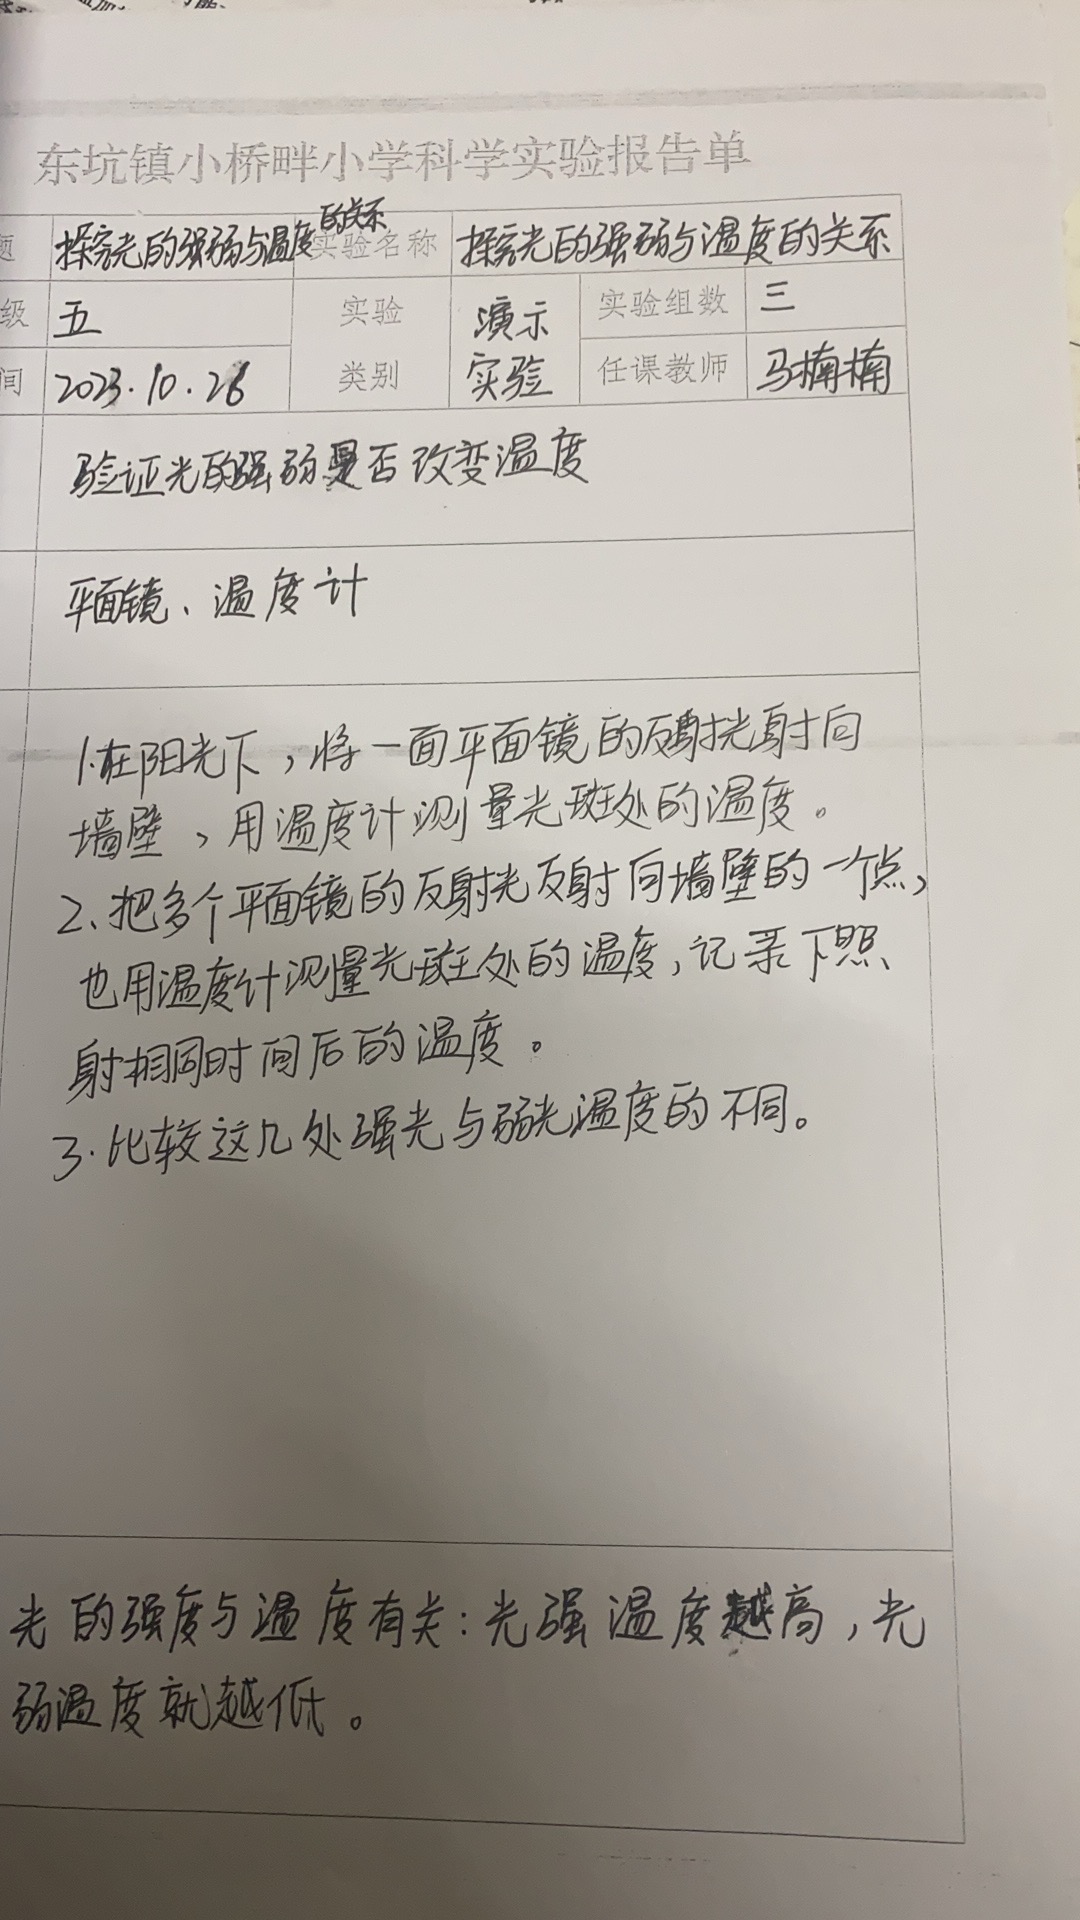 东坑镇小桥畔小学科学实验报告单
题 探究光的强弱与温度的关系 实验名称 探究光的强弱与温度的关系
级 五 实验类别 演示实验 实验组数 三
间 2023.10.26 任课教师 马楠楠
验证光的强弱是否改变温度
平面镜、温度计
1.在阳光下,将一面平面镜的反射光射向
墙壁,用温度计测量光斑处的温度。
2、把多个平面镜的反射光反射向墙壁的一个点,
也用温度计测量光斑处的温度,记录下照
射相同时间后的温度。
3.比较这几处强光与弱光温度的不同。
光的强度与温度有关:光强温度越高,光
弱温度就越低。